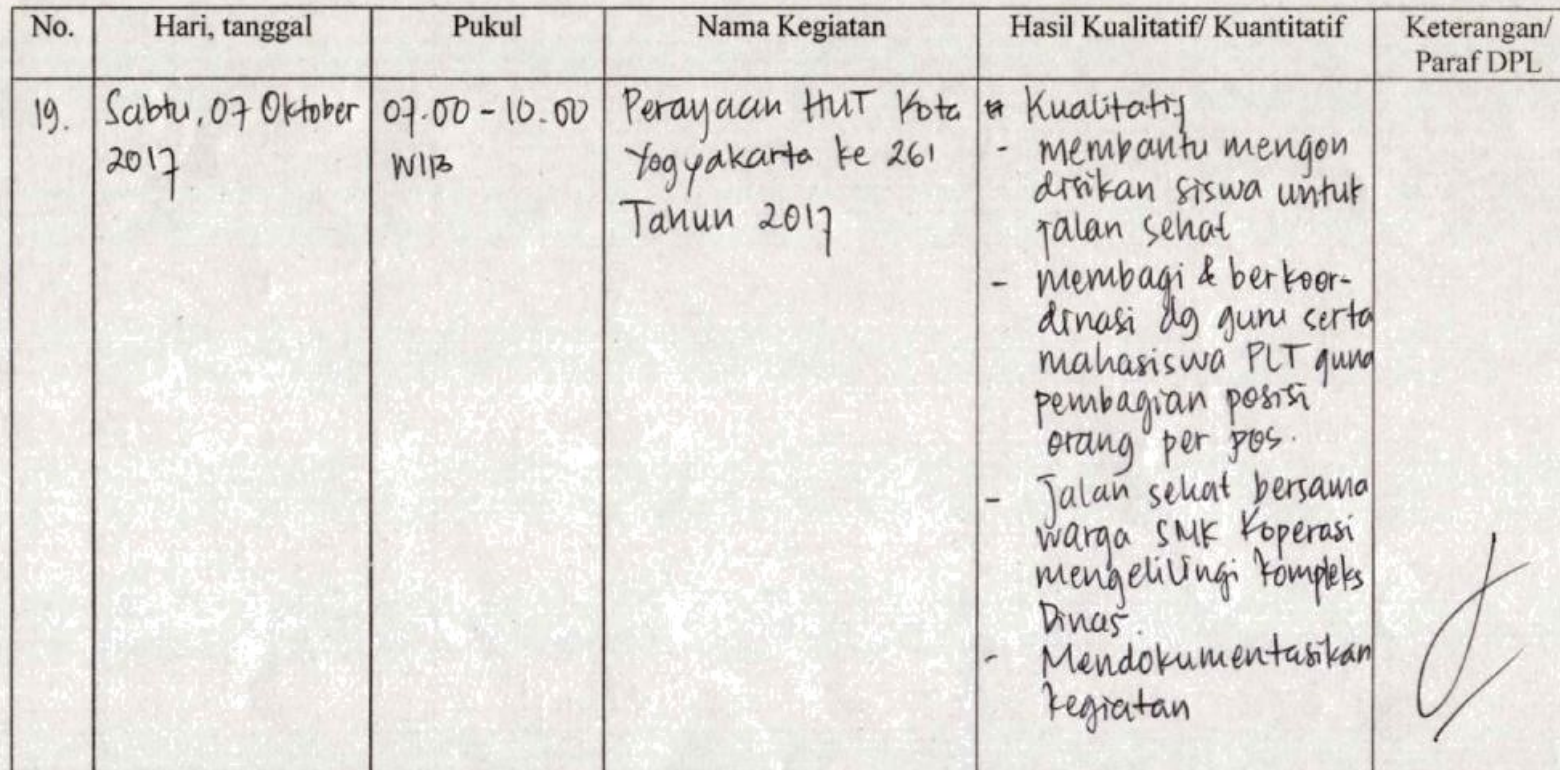 No. Hari, tanggal Pukul Nama Kegiatan Hasil Kualitatif/ Kuantitatif Keterangan/
Paraf DPL
19. Sabtu, 07 Oktober
2017
07.00 - 10.00
WIB
Perayaan HUT Kota
Yogyakarta ke 261
Tahun 2017
Kualitatif
- membantu mengon
disikan siswa untuk
jalan sehat
- membagi & berkoor-
dinasi dg guru serta
mahasiswa PLT guna
pembagian posisi
orang per pos.
- Jalan sehat bersama
warga SMK Koperasi
mengelilingi kompleks
Dinas.
- Mendokumentasikan
kegiatan